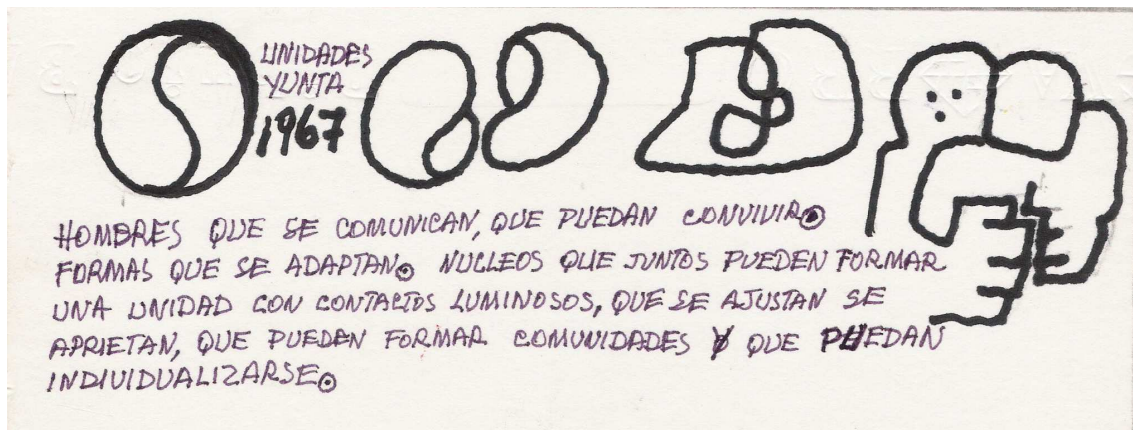 UNIDADES
YUNTA
1967
HOMBRES QUE SE COMUNICAN, QUE PUEDAN CONVIVIR.
FORMAS QUE SE ADAPTAN. NUCLEOS QUE JUNTOS PUEDEN FORMAR
UNA UNIDAD CON CONTACTOS LUMINOSOS, QUE SE AJUSTAN SE
APRIETAN, QUE PUEDEN FORMAR COMUNIDADES Y QUE PUEDAN
INDIVIDUALIZARSE.